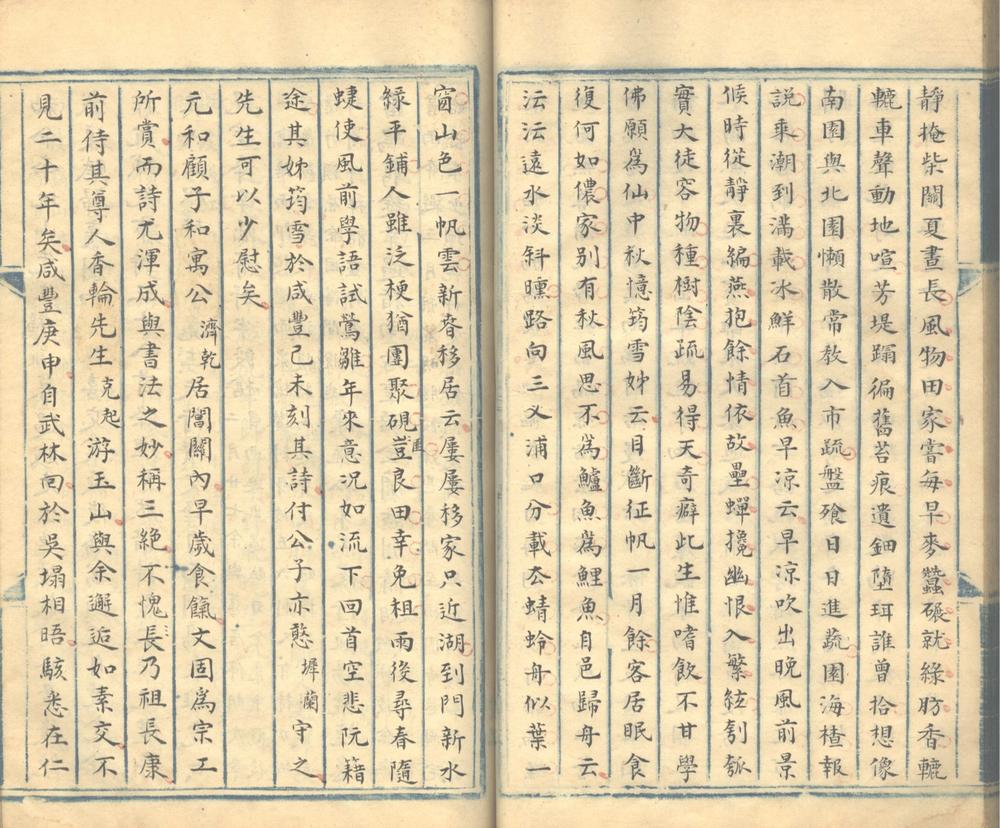 靜掩柴關夏晝長風物田家嘗每早麥蠶碾就綠肪香轆
轆車聲動地喧芳堤踊徧舊苔痕遺鈿墮珥誰曾拾想像
南園與北園懶散常教入市疏盤飱日日進蔬園海楂報
說乘潮到滿載冰鮮石首魚早凉云早凉吹出晚風前景
候時從靜裏編燕抱餘情依故壘蟬攙幽恨入繁絃匏瓠
實大徒容物種樹陰疏易得天奇癖此生惟嗜飲不甘學
佛願爲仙中秋憶筠雪姊云目斷征帆一月餘客居眠食
復何如儂家别有秋風思不爲鱸魚爲鯉魚自邑歸舟云
沄沄遠水淡斜曛路向三乂浦口分載夲蜻蛉舟似葉一
窗山色一帆雲新春移居云屢屢移家只近湖到門新水
綠平鋪人雖泛梗猶團聚硯匪豈良田幸免租雨後尋春隨
蜨使風前學語試鶯雛年來意况如流下回首空悲阮籍
途其姊筠雪於咸豐己未刻其詩付公子亦憨墀蘭守之
先生可以少慰矣
元和顧子和寓公濟乾居閶關內早歲食餼文固爲宗工
所賞而詩尤渾成與書法之妙稱三絶不愧長乃祖長康
前待其尊人香輪先生克起游玉山與余邂逅如素交不
見二十年矣咸豐庚申自武林囘於吳塌相晤駭悉在仁